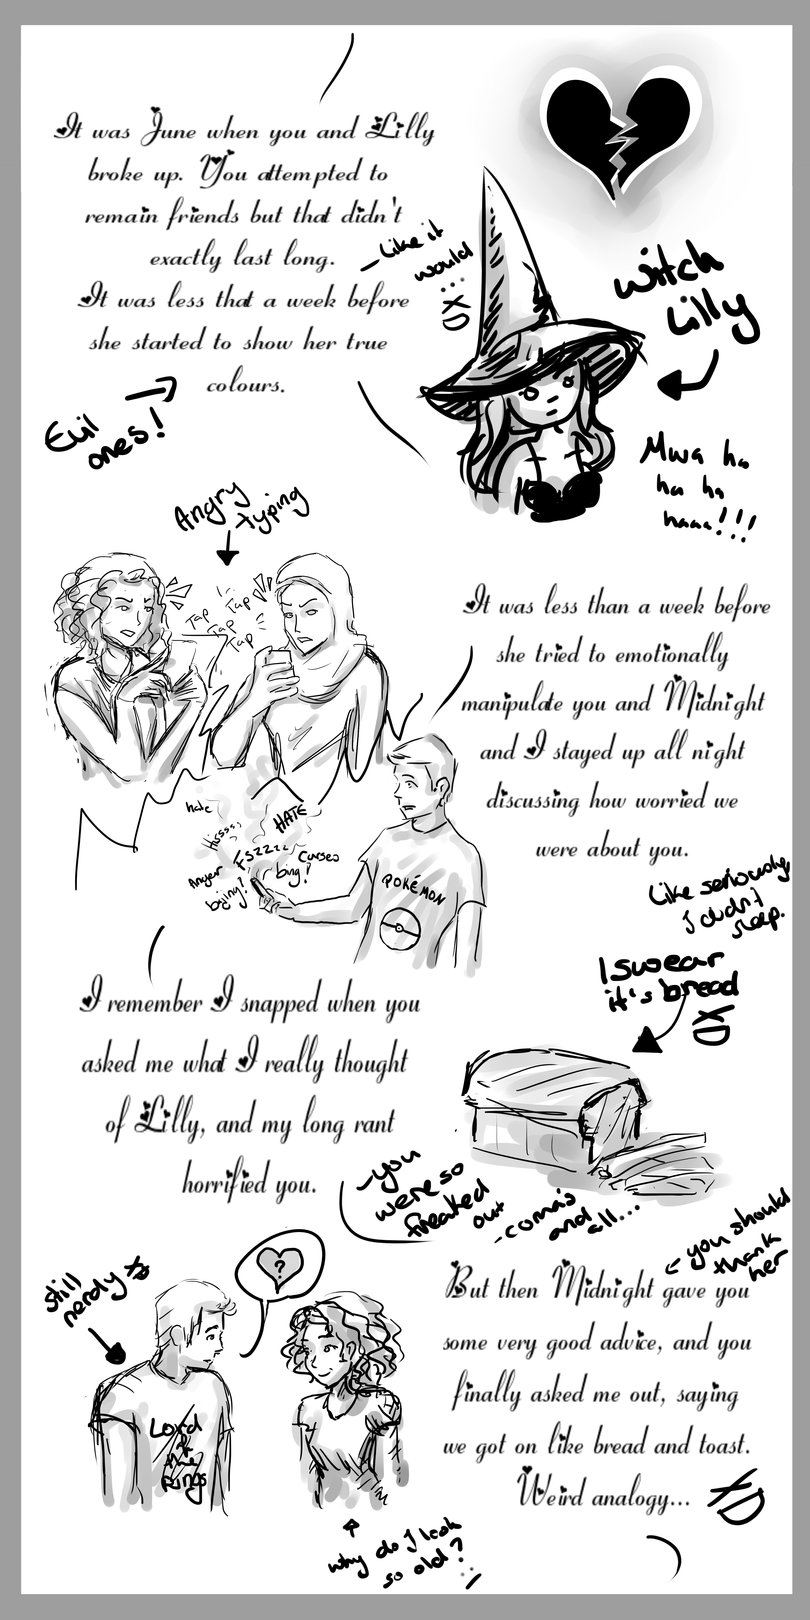 It was June when you and Lilly
broke up. You attempted to
remain friends but that didn't
exactly last long.
It was less that a week before
she started to show her true
colours.
- Like it
would
... XD
Witch
Lilly
Evil
ones!
Mwa ha
ha ha
haaa!!!
Angry
typing
Tap
Tap
Tap
Tap
It was less than a week before
she tried to emotionally
manipulate you and Midnight
and I stayed up all night
discussing how worried we
were about you.
hate
HATE
Hissss
FSzzzz
Curses
Anger
bing!
bing!
POKÉMON
Like seriously
I didn't
sleep.
I swear
it's bread
XD
I remember I snapped when you
asked me what I really thought
of Lilly, and my long rant
horrified you.
- you
were so
freaked
out
- coma's
and
all...
← you should
thank
her
But then Midnight gave you
some very good advice, and you
finally asked me out, saying
we got on like bread and toast.
Weird analogy... XD
?
still
nerdy XD
Lord
of
the
Rings
why do I look
so old?